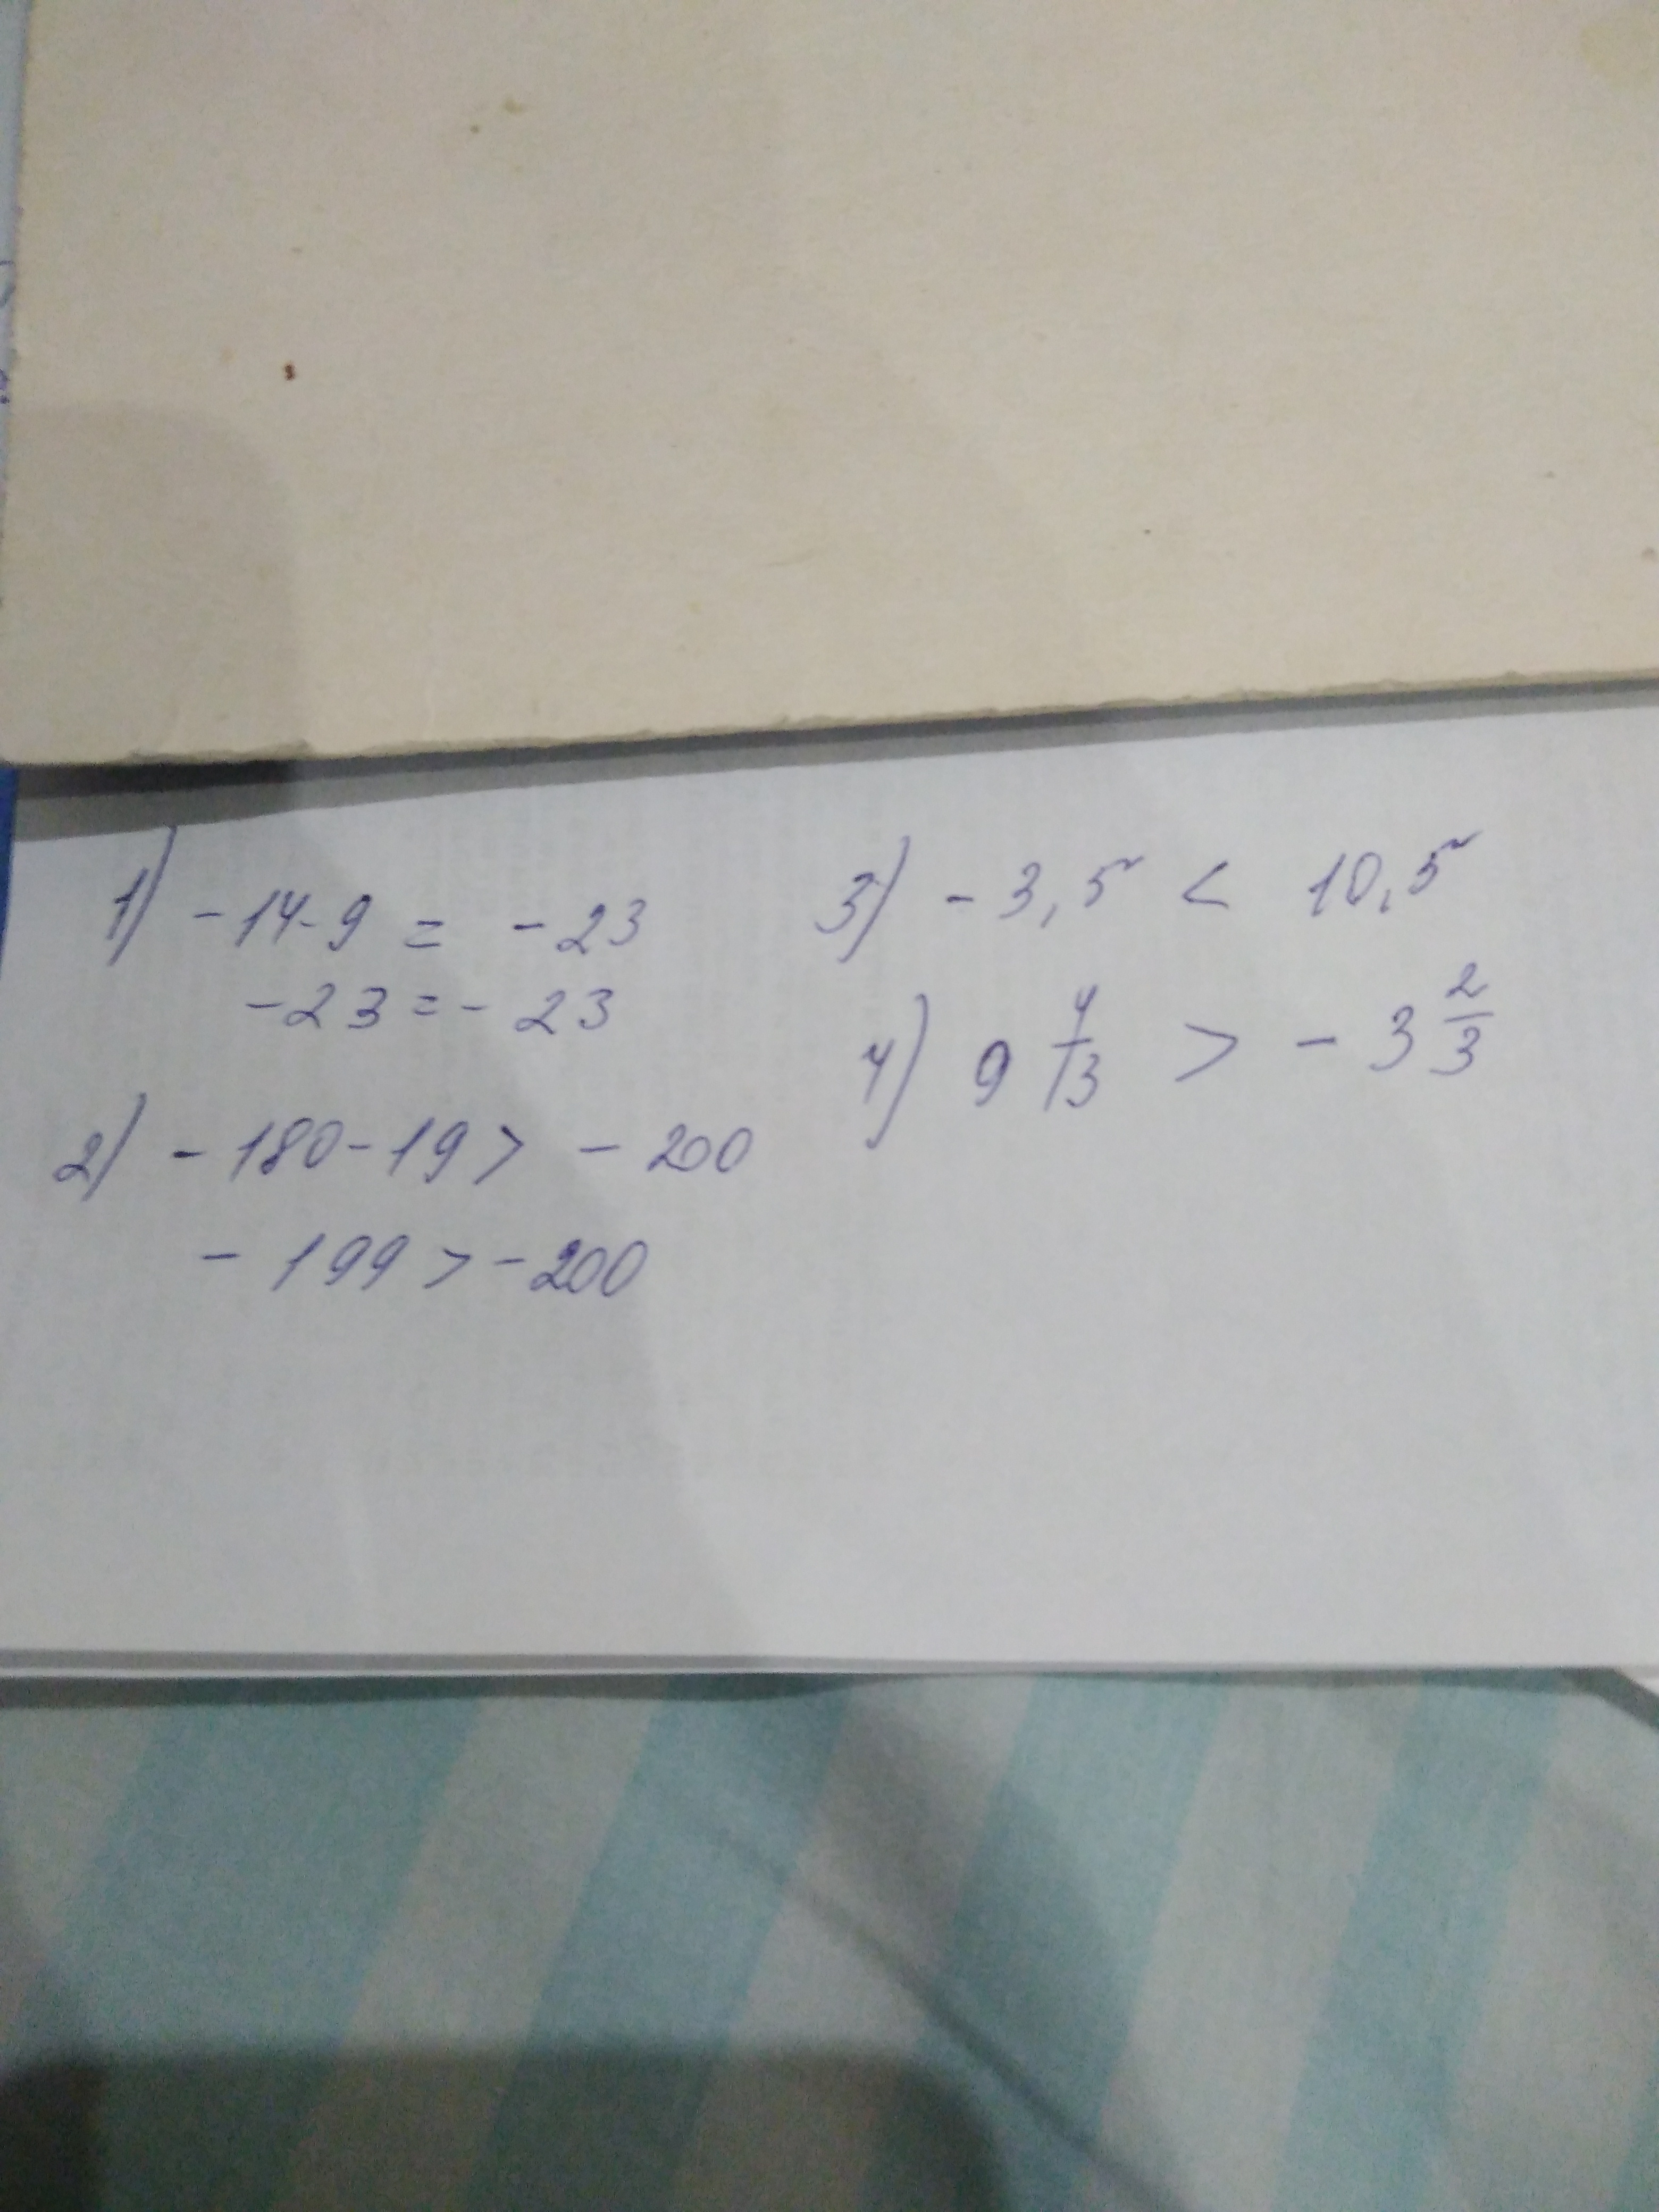 1) -14-9 = -23
-23 = -23
2) -180-19 > -200
-199 > -200
3) -3,5 < 10,5
4) 9 4/13 > -3 2/3